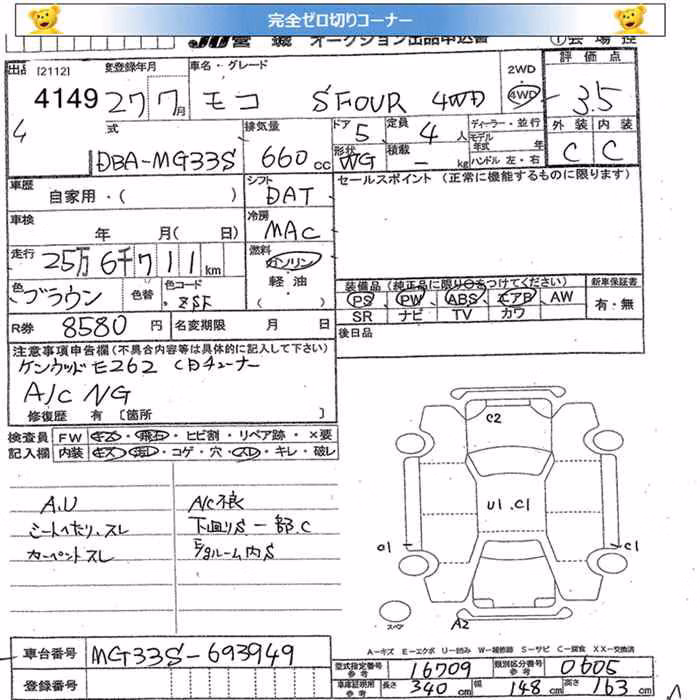 完全ゼロ切りコーナー
オークション出品申込書
出品 [2112] 登録年月 車名・グレード 2WD 評価点
4149 27 7月 モコ SFOUR 4WD 4WD 3.5
4 式 排気量 ドア 5 定員 4人 ディーラー・並行 外装 内装
モデル年式 年
DBA-MG33S 660cc 形状 WG 積載 - kg ハンドル 左・右 C C
車歴 自家用・( ) シフト DAT セールスポイント (正常に機能するものに限ります)
車検 年 月(日) 冷房 MAC
走行 25万6千711km 燃料 ガソリン・軽油
色 ブラウン 色替 色コード ZSF ( ) 装備品(純正品に限り○をつけてください) 新車保証書
PS PW ABS エアB AW 有・無
SR ナビ TV カワ
R券 8580円 名変期限 月 日 後日品
注意事項申告欄(不具合内容等は具体的に記入して下さい)
ケンウッド E262 CDチューナー
A/C NG
修復歴 有 [箇所 ]
検査員 FW キズ・飛石・ヒビ割・リペア跡・×要
記入欄 内装 キズ・汚レ・コゲ・穴・スレ・キレ・破レ
A.U A/C不良
シートヘタリ、スレ 下廻りS 一部.C
カーペットスレ E/gルーム内S
C2
U1.C1
01 C1
A2
スペア
A-キズ E-エクボ U-凹み W-補修跡 S-サビ C-腐食 XX-交換済
車台番号 MG33S-693949
型式指定番号 参考 16709 類別区分番号 参考 0605
登録番号
車庫証明用 参考 長さ 340cm 幅 148cm 高さ 163cm